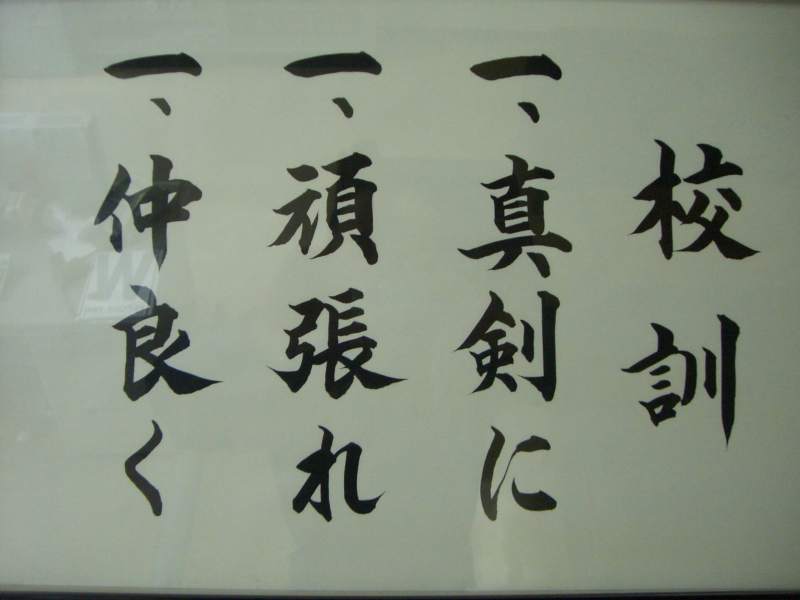 校訓
一、真剣に
一、頑張れ
一、仲良く